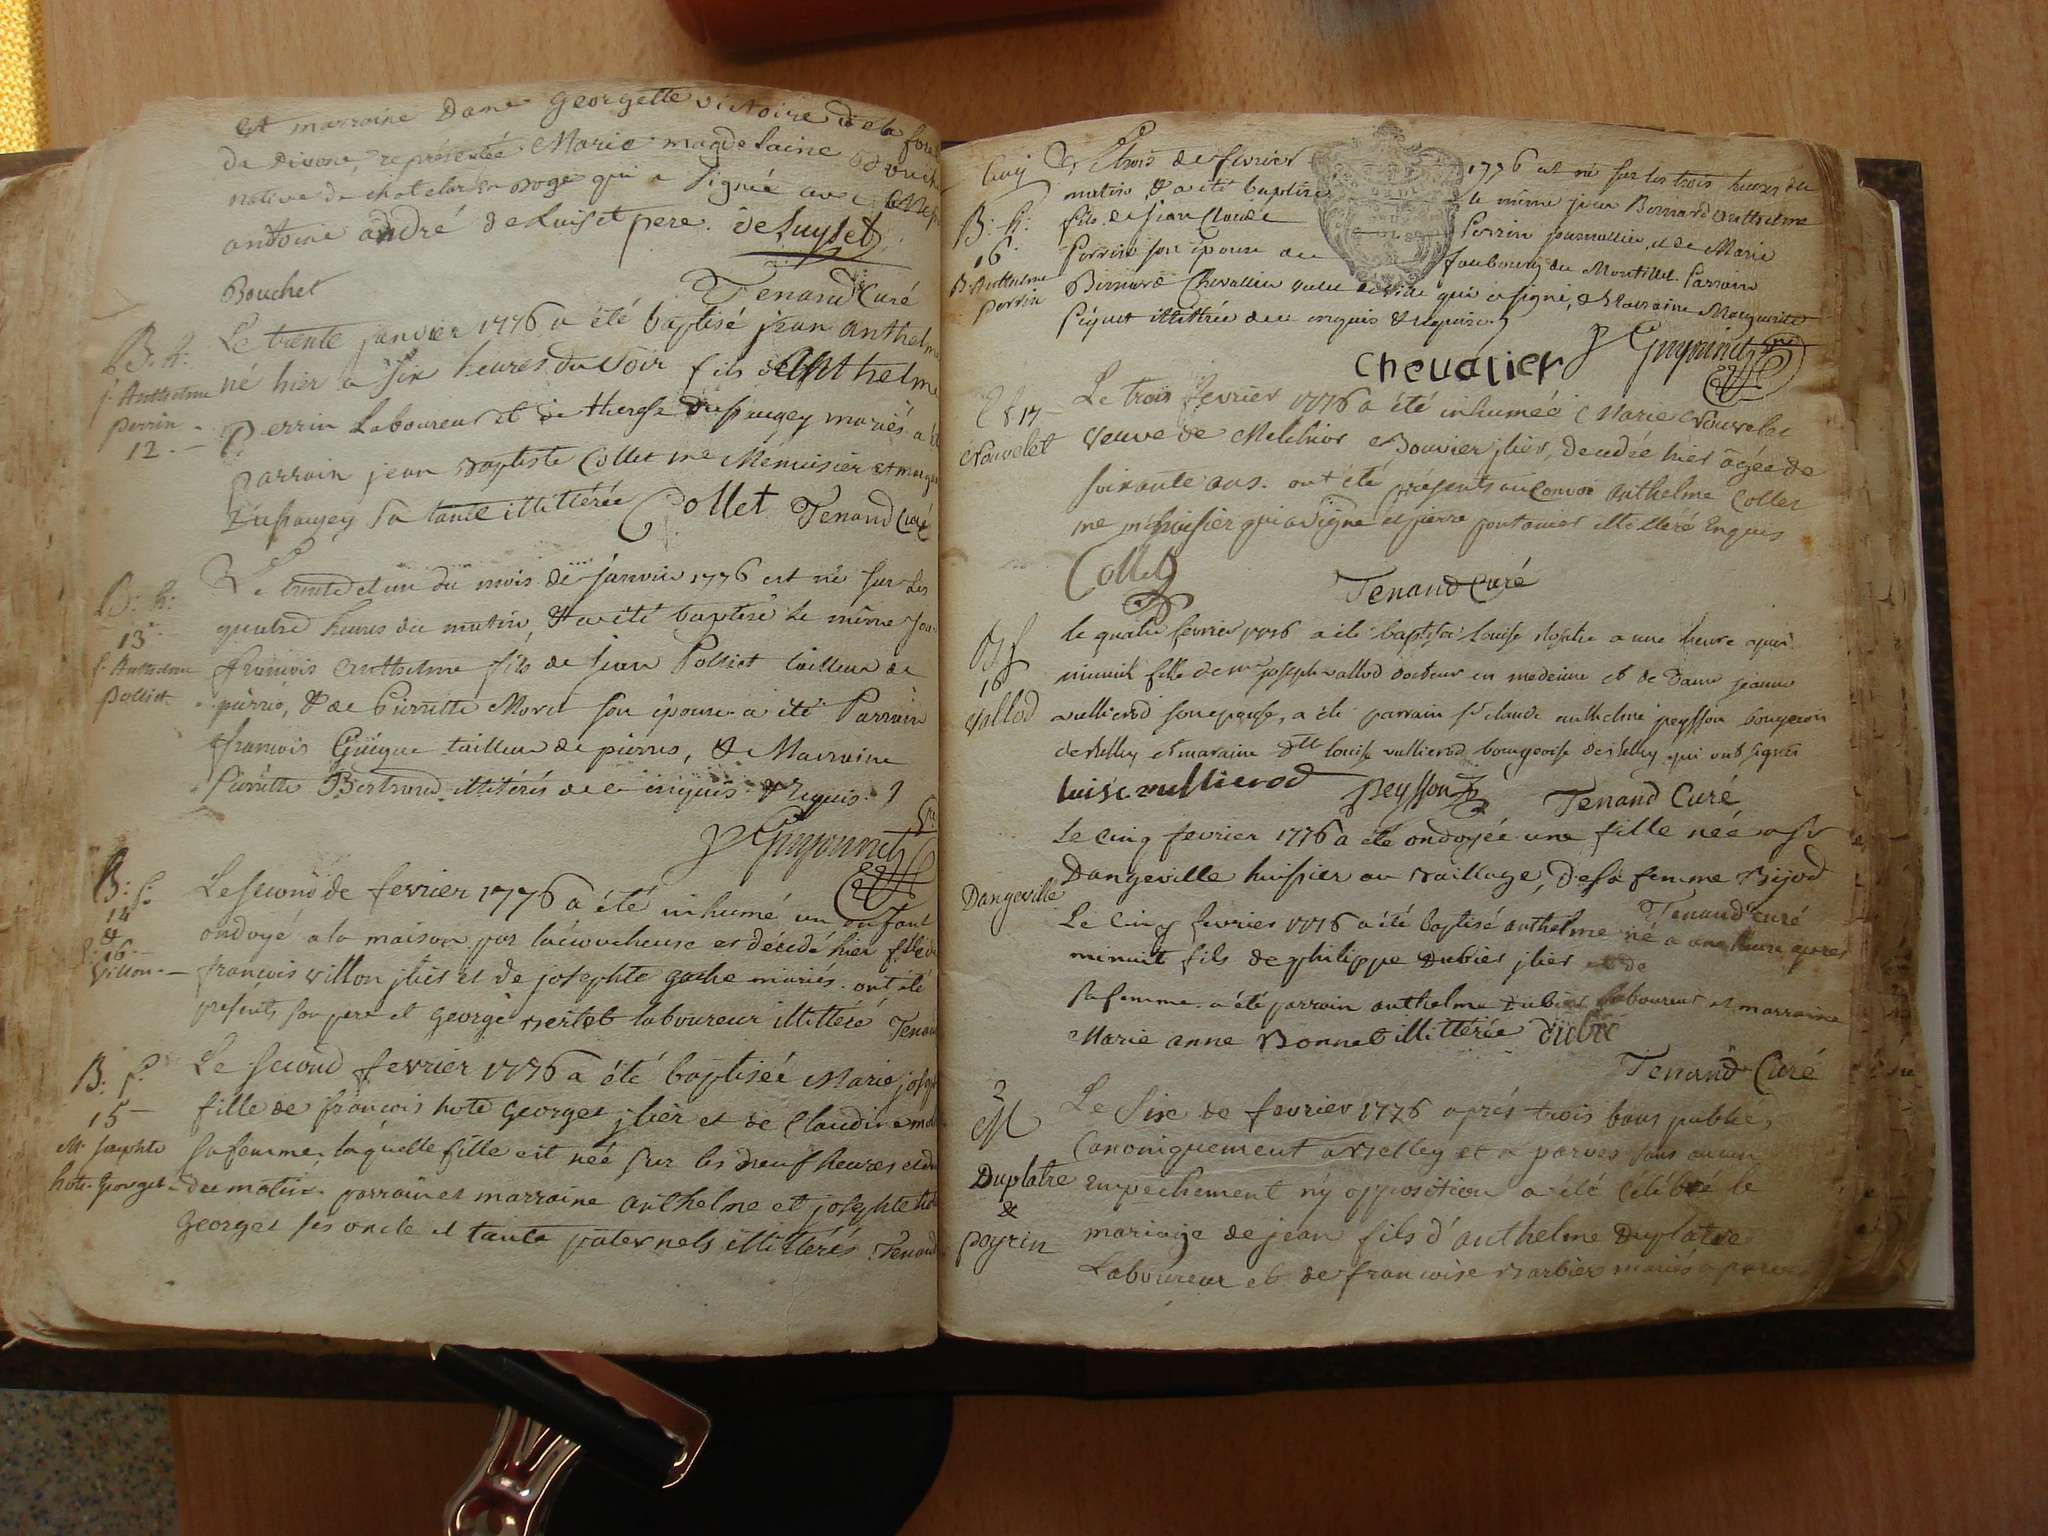 Et marraine Dame Georgette victoire de la
de Divone, représentée Marie magdelaine
native de chatelar en Boge qui a signée avec
antoine andré deluiset pere. deluyset
Bouchet
Tenand Curé
B. h:
f. Anthelme
perrin
12.
Le trente janvier 1776 a été baptisé jean anthelme
né hier a six heures du soir fils d'Anthelme
perrin Laboureur et de therese Dupuugey mariés. a été
parrain jean Baptiste Collet me Menuisier et
sa tante illittérée Collet Tenand Curé
B: h:
13
f. Anthelme
Polliet
Le trente et un du mois de janvier 1776 est né sur les
quatre heures du matin, & a été baptisé le même jour
françois Anthelme fils de jean Polliet tailleur de
pierres, & de Pierrette Morel son épouse a été Parrain
françois Guigue tailleur de pierres, & Marraine
Pierrette Bertrand illitérés de ce enquis & Requis.
Guyonnet
B: f.
14
&
16
Villon
Le second de fevrier 1776 a été inhumé un enfant
ondoyé a la maison par l'acoucheuse et décédé hier fils de
françois villon jlier et de josephte gache mariés. ont été
présents son pere et george Bertet laboureur illittéré Tenand
B: f.
15
M. Josephte
hote-Georget
Le second fevrier 1776 a été baptiseé Marie
fille de françois hote Georget jlier et de Claudine
sa femme, laquelle fille est née sur les neuf heures
du matin. parrain et marraine anthelme et josephte
Georget ses oncle et tante paternels illittérés, Tenand
B. h:
16
B. Anthelme
perrin
Le trois de fevrier 1776 est né sur les trois heures du
matin & a été baptisé le même jour Bernard Anthelme
fils de jean Claude Perrin journallier, et de Marie
Perrin son épouse au faubourg du Montillet. Parrain
Bernard Chevallier qui a signé, & Marraine Marguerite
Piquet illittérée de ce enquis & requise
Chevalier Guyonnet
17
Nouvelet
Le trois fevrier 1776 a été inhumeé Marie Nouvelet
veuve de Melchior Bouvier jlier, decedée hier âgée de
soixante ans. ont été présents au Convoi anthelme Collet
me menuisier qui a signé et pierre pontanier illittéré Enquis
Collet
Tenand Curé
B f
16
Vallod
le quatre fevrier 1776 a été baptisée louise Josephe a une heure après
minuit fille de mr joseph vallod docteur en medecine et de dame jeanne
vullierod son epouse, a été parrain sr claude anthelme peysson bourgeois
de Belley et maraine dlle louise vullierod bourgeoise de Belley qui ont signés
luise vullierod peysson Tenand Curé
Dangeville
Le cinq fevrier 1776 a été ondoyée une fille née a sr
Dangeville huissier au Bailliage, de sa femme Bijod
Tenand Curé
Le Cinq fevrier 1776 a été baptisé anthelme né a une heure apres
minuit fils de philippe Dubier jlier et de
sa femme. a été parrain anthelme Dubier laboureur et marraine
Marie anne Bonnet illittérée dubié
Tenand Curé
2
M
Duplatre
&
poyrin
Le Six de fevrier 1776 après trois bans publiés
Canoniquement a Belley et a parves sans aucun
empechement n'y opposition a été célébré le
mariage de jean fils d'anthelme Duplatre
Laboureur et de françoise Barbier mariés a parves